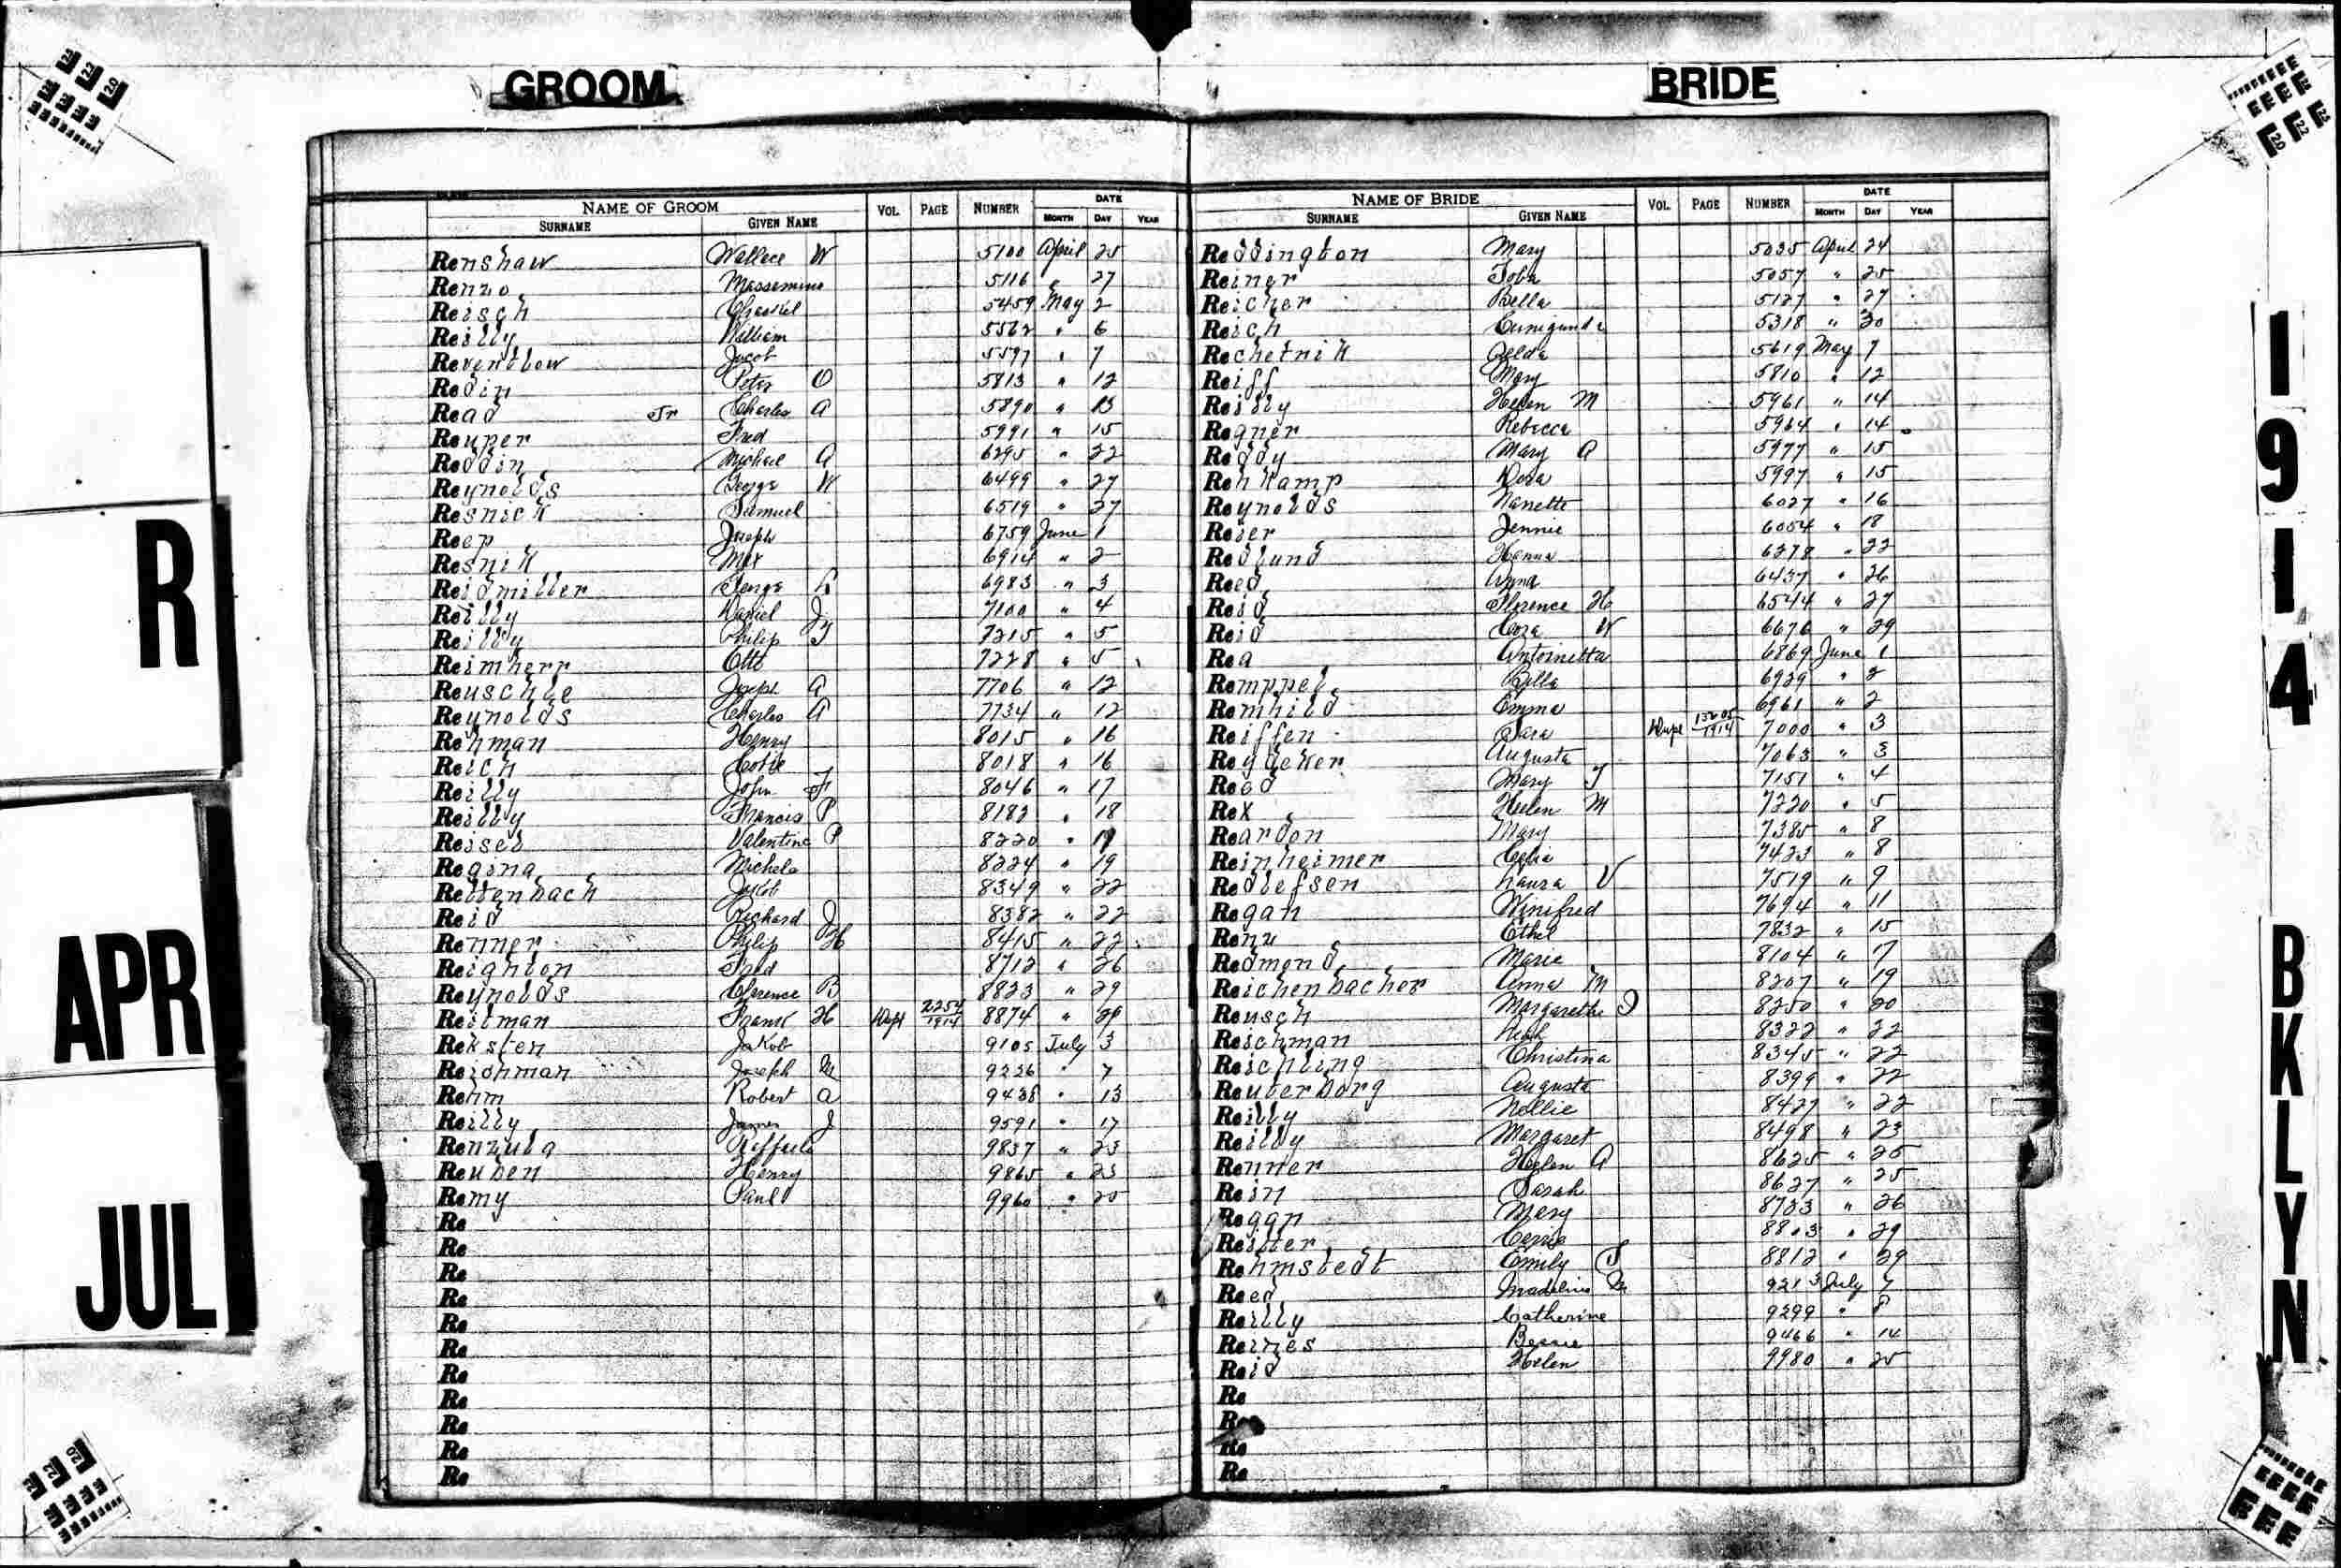 GROOM
BRIDE
R
APR
JUL
1914
BKLYN
NAME OF GROOM VOL. PAGE NUMBER DATE
SURNAME GIVEN NAME MONTH DAY YEAR
Renshaw Wallace W 5100 April 25
Renzo Massemino 5116 " 27
Reisch 5459 May 2
Reilly William 5562 " 6
Reventlow Jacob 5597 " 7
Redin Peter O 5813 " 12
Read Jr Charles A 5890 " 13
Reuper Fred 5991 " 15
Reddin Michael A 6295 " 22
Reynolds George W 6499 " 27
Resnick Samuel 6519 " 27
Reep Joseph 6759 June 1
Resnik Max 6914 " 2
Reidmiller George 6983 " 3
Reilly Daniel J 7100 " 4
Reilly Philip J 7215 " 5
Reimherr Otto 7228 " 5
Reuschle Joseph A 7706 " 12
Reynolds Charles A 7734 " 12
Rehman Henry 8015 " 16
Reich 8018 " 16
Reilly John F 8046 " 17
Reilly Francis P 8182 " 18
Reisel Valentine P 8220 " 19
Regina Michele 8224 " 19
Rettenbach Jacob 8349 " 22
Reid Richard J 8382 " 22
Renner Philip H 8415 " 22
Reighton Fred 8712 " 26
Reynolds Clarence B 8823 " 29
Reitman Frank H Dupl 2254/1914 8874 " 29
Reksten Jakob 9105 July 3
Reichman Joseph M 9236 " 7
Rehm Robert A 9438 " 13
Reilly James J 9591 " 17
Renzulla Raffaele 9837 " 23
Reuben Henry 9865 " 23
Remy Paul 9960 " 25
Re
Re
Re
Re
Re
Re
Re
Re
Re
Re
Re
NAME OF BRIDE VOL. PAGE NUMBER DATE
SURNAME GIVEN NAME MONTH DAY YEAR
Reddington Mary 5035 April 24
Reiner Toba 5057 " 25
Reicher Bella 5127 " 27
Reich Cunigunda 5318 " 30
Rechetnik Zelda 5619 May 7
Reiff Mary 5810 " 12
Reilly Helen M 5961 " 14
Regner Rebecca 5964 " 14
Reddy Mary A 5977 " 15
Rehkamp Dora 5997 " 15
Reynolds Nanette 6027 " 16
Reier Jennie 6054 " 18
Redlund Hanna 6278 " 22
Reed Anna 6437 " 26
Reid Florence H 6544 " 27
Reid Cora W 6676 " 29
Rea Antoinetta 6869 June 1
Remppel Bella 6929 " 2
Remhild Emma 6961 " 2
Reiffen Sara Dupl 13205/1914 7000 " 3
Reydeker Augusta 7063 " 3
Reed Mary J 7151 " 4
Rex Helen M 7220 " 5
Reardon Mary 7385 " 8
Reinheimer Celia 7423 " 8
Redlefsen Laura V 7519 " 9
Regan Winifred 7694 " 11
Renu Ethel 7832 " 15
Redmond Marie 8104 " 17
Reichenbacher Anna M 8207 " 19
Reusch Margarethe J 8250 " 20
Reichman Leah 8322 " 22
Reichling Christina 8345 " 22
Reuterborg Augusta 8399 " 22
Reilly Nellie 8427 " 22
Reilly Margaret 8498 " 23
Renner Helen A 8625 " 25
Rein Sarah 8627 " 25
Regan Mary 8733 " 26
Reiter Carrie 8803 " 29
Rehmstedt Emily S 8812 " 29
Reed Madeline M 9213 July 7
Reilly Catherine 9299 " 8
Reines Bessie 9466 " 14
Reid Helen 9980 " 25
Re
Re
Re
Re